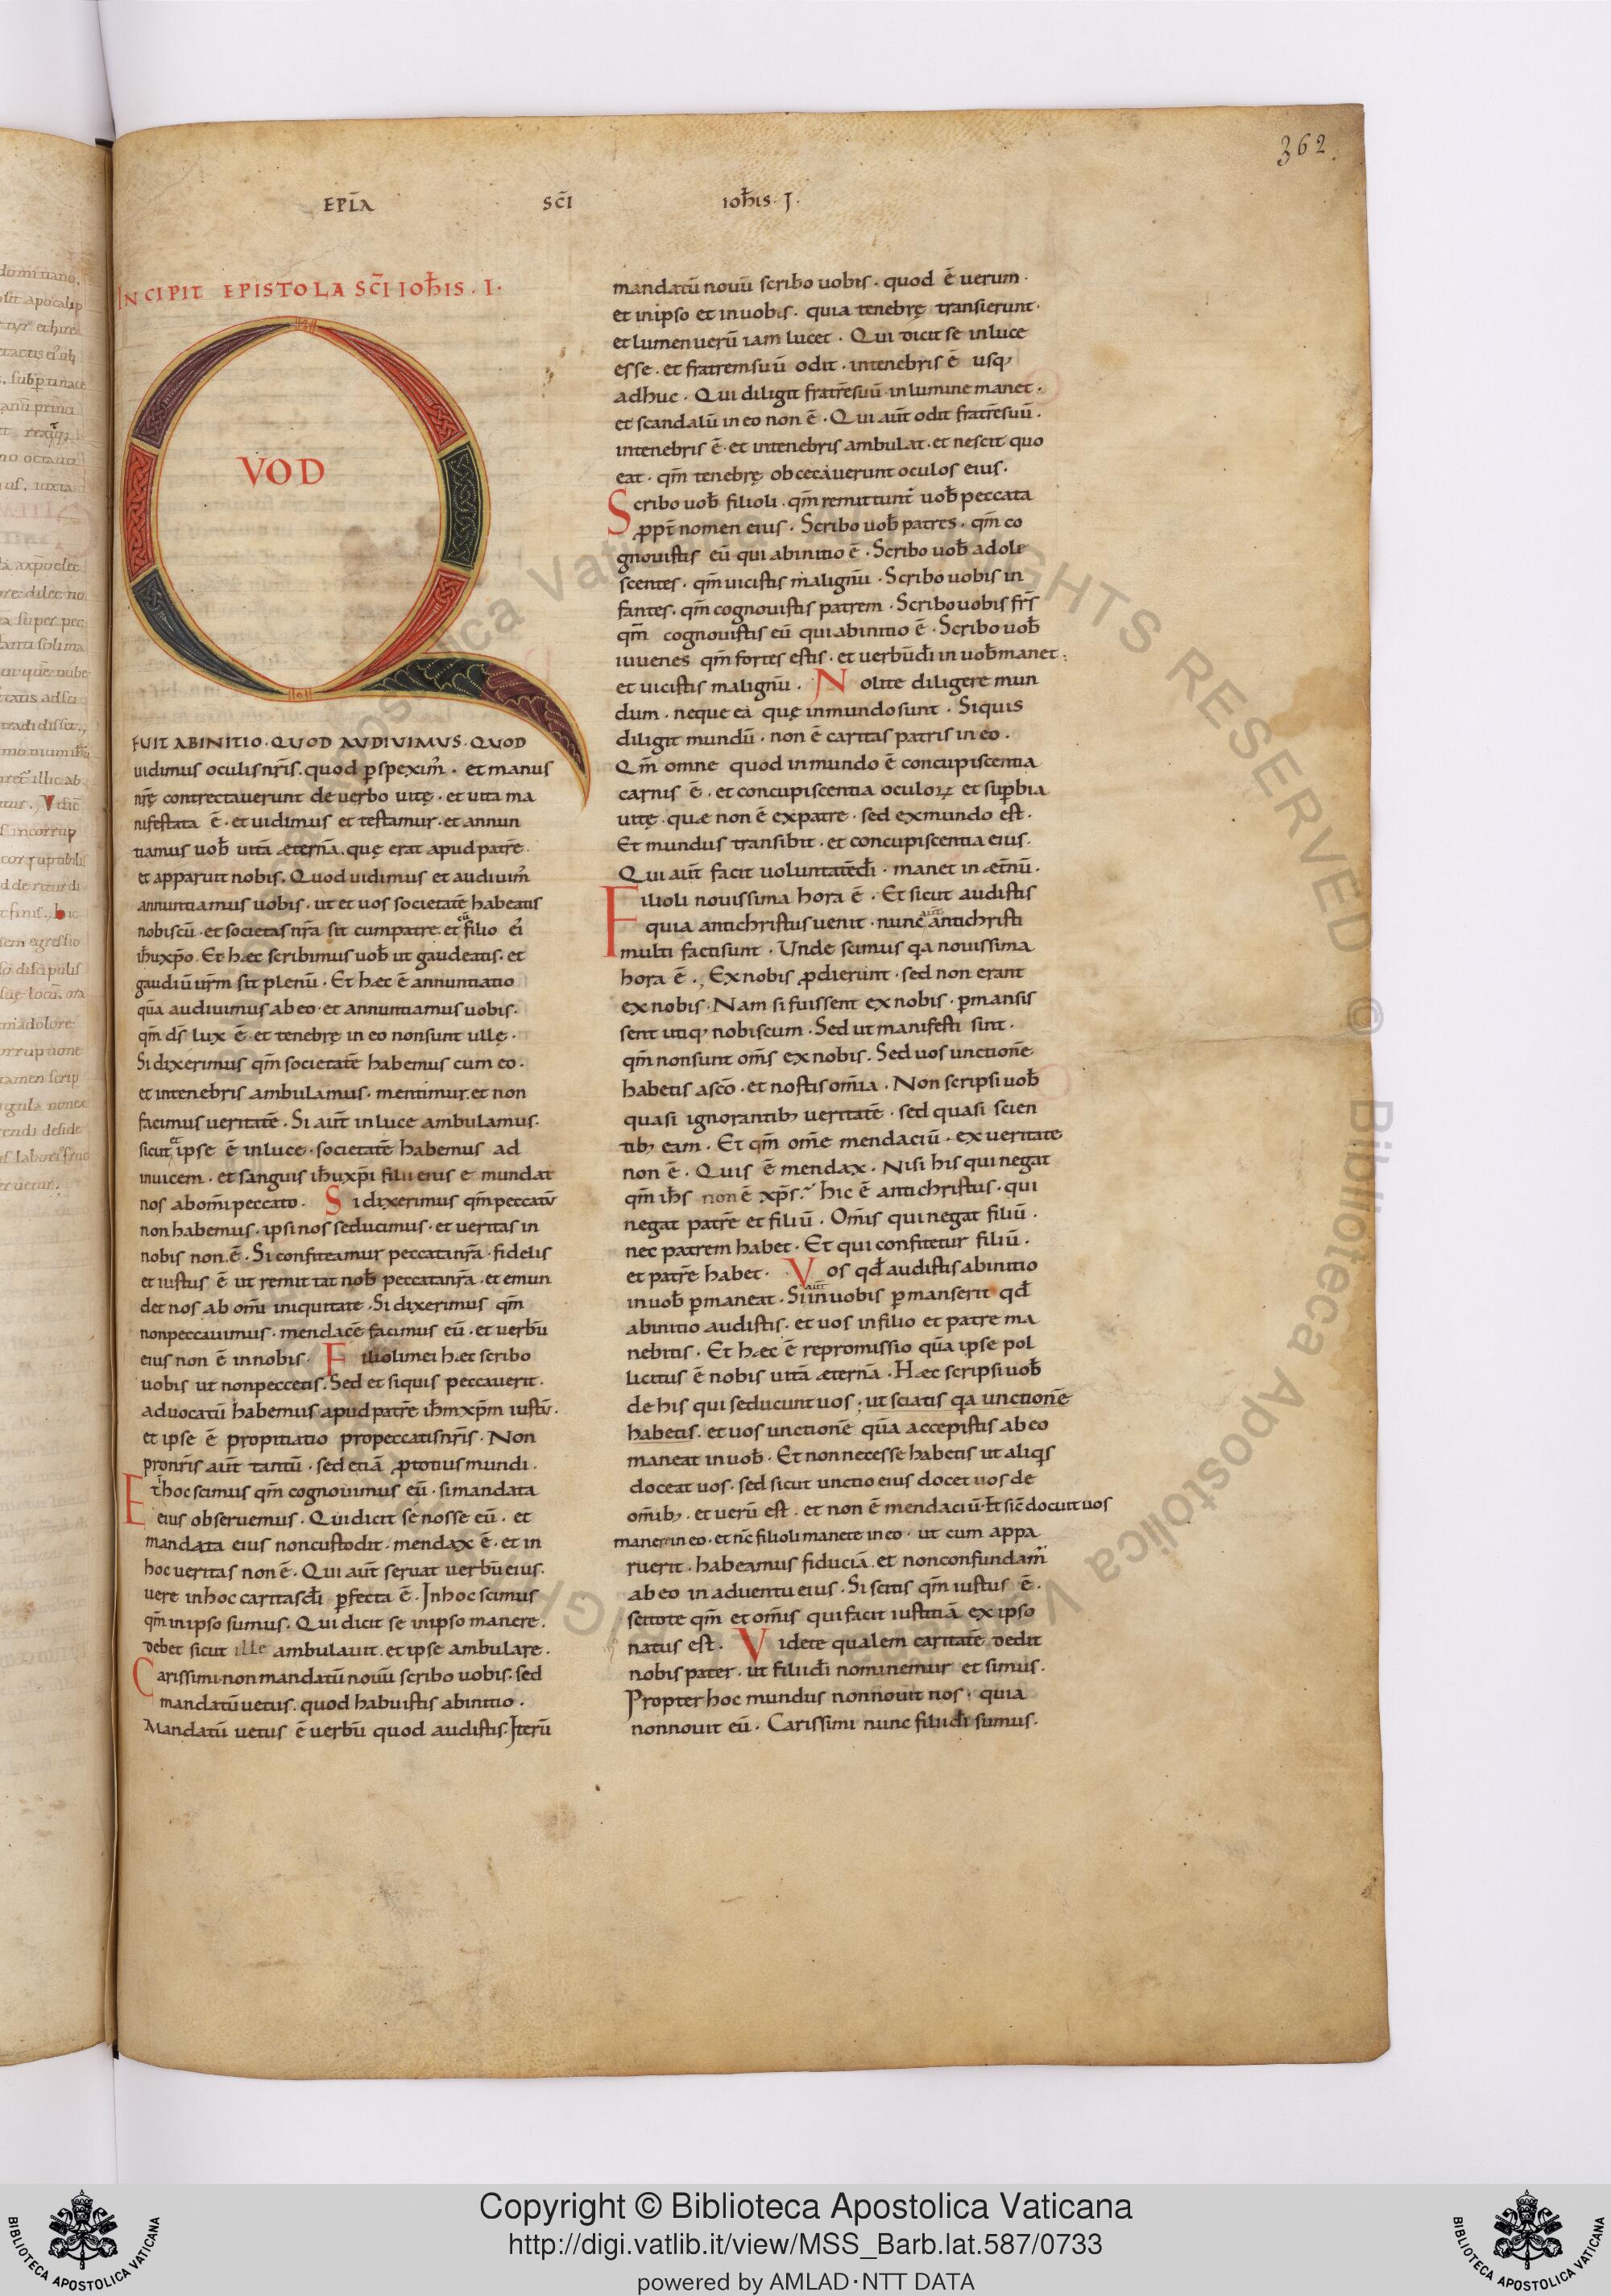 362.
EPL̄A SC̄I IOH̄IS. I.
INCIPIT EPISTOLA SC̄I IOH̄IS. I.
QVOD
FUIT AB INITIO. QUOD AUDIVIMUS. QUOD
uidimus oculis nr̄is. quod ꝑspexim᾽. et manus
nr̄ę contrectauerunt de uerbo uitę. et uita ma
nifestata ē. et uidimus et testamur. et annun
tiamus uob̄ uitā æternā. quę erat apud patrē.
et apparuit nobis. Quod uidimus et audiuim᾽
annuntiamus uobis. ut et uos societatē habeatis
nobiscū. et societas nr̄a sit cum patre. et cū filio ei᾽
ih̄u xp̄o. Et hæc scribimus uob̄ ut gaudeatis. et
gaudiū ur̄m sit plenū. Et hæc ē annuntiatio
quā audiuimus ab eo. et annuntiamus uobis.
qm̄ ds̄ lux ē. et tenebrę in eo non sunt ullę.
Si dixerimus qm̄ societatē habemus cum eo.
et in tenebris ambulamus. mentimur. et non
facimus ueritatē. Si aut̄ in luce ambulamus.
sicut et ipse ē in luce. societatē habemus ad
inuicem. et sanguis ih̄u xp̄i filii eius e mundat
nos ab om̄i peccato. Si dixerimus qm̄ peccatū
non habemus. ipsi nos seducimus. et ueritas in
nobis non ē. Si confiteamur peccata nr̄a. fidelis
et iustus ē ut remittat nob̄ peccata nr̄a. et emun
det nos ab om̄i iniquitate. Si dixerimus qm̄
non peccauimus. mendacē facimus eū. et uerbū
eius non ē in nobis. Filioli mei hæc scribo
uobis ut non peccetis. Sed et siquis peccauerit.
aduocatū habemus apud patrē ih̄m xp̄m iustū.
et ipse ē propitiatio pro peccatis nr̄is. Non
pro nr̄is aut̄ tantū. sed etiā ꝓ totius mundi.
Et ī hoc scimus qm̄ cognouimus eū. si mandata
eius obseruemus. Qui dicit se nosse eū. et
mandata eius non custodit. mendax ē. et in
hoc ueritas non ē. Qui aut̄ seruat uerbū eius.
uere in hoc caritas dī ꝑfecta ē. In hoc scimus
qm̄ in ipso sumus. Qui dicit se in ipso manere.
debet sicut ille ambulauit. et ipse ambulare.
Carissimi. non mandatū nouū scribo uobis. sed
mandatū uetus. quod habuistis ab initio.
Mandatū uetus ē uerbū quod audistis. Iterū
mandatū nouū scribo uobis. quod ē uerum.
et in ipso et in uobis. quia tenebrę transierunt.
et lumen uerū iam lucet. Qui dicit se in luce
esse. et fratrem suū odit. in tenebris ē usq;
adhuc. Qui diligit fratrē suū. in lumine manet.
et scandalū in eo non ē. Qui aut̄ odit fratrē suū.
in tenebris ē. et in tenebris ambulat. et nescit quo
eat. qm̄ tenebrę obcecauerunt oculos eius.
Scribo uob̄ filioli. qm̄ remittunt᾽ uob̄ peccata
ꝓpt̄ nomen eius. Scribo uob̄ patres. qm̄ co
gnouistis eū qui ab initio ē. Scribo uob̄ adole
scentes. qm̄ uicistis malignū. Scribo uobis in
fantes. qm̄ cognouistis patrem. Scribo uobis fr̄s
qm̄ cognouistis eū qui ab initio ē. Scribo uob̄
iuuenes qm̄ fortes estis. et uerbū dī in uob̄ manet.
et uicistis malignū. Nolite diligere mun
dum. neque ea quę in mundo sunt. Siquis
diligit mundū. non ē caritas patris in eo.
Qm̄ omne quod in mundo ē concupiscentia
carnis ē. et concupiscentia oculoꝝ et suꝑbia
uitę. quæ non ē ex patre. sed ex mundo est.
Et mundus transibit. et concupiscentia eius.
Qui aut̄ facit uoluntatē dī. manet in æt̄nū.
Filioli nouissima hora ē. Et sicut audistis
quia antichristus uenit. nunc aut̄ antichristi
multi facti sunt. Unde scimus qa nouissima
hora ē. Ex nobis ꝓdierunt. sed non erant
ex nobis. Nam si fuissent ex nobis. ꝑmansis
sent utiq; nobiscum. Sed ut manifesti sint.
qm̄ non sunt om̄s ex nobis. Sed uos unctionē
habetis a sc̄o. et nostis om̄ia. Non scripsi uob̄
quasi ignorantib; ueritatē. sed quasi scien
tib; eam. Et qm̄ om̄e mendaciū. ex ueritate
non ē. Quis ē mendax. Nisi his qui negat
qm̄ ih̄s non ē xp̄s. hic ē antichristus. qui
negat patrē et filiū. Om̄is qui negat filiū.
nec patrem habet. Et qui confitetur filiū.
et patrē habet. Vos qd̄ audistis ab initio
in uob̄ ꝑmaneat. Si in uobis ꝑmanserit qd̄
ab initio audistis. et uos in filio et patre ma
nebitis. Et hæc ē repromissio quā ipse pol
licitus ē nobis uitā æternā. Hæc scripsi uob̄
de his qui seducunt uos. ut sciatis qa unctionē
habetis. et uos unctionē quā accepistis ab eo
maneat in uob̄. Et non necesse habetis ut aliqs
doceat uos. sed sicut unctio eius docet uos de
om̄ib;. et uerū est. et non ē mendaciū. et sic̄ docuit uos
manete in eo. et nc̄ filioli manete in eo. ut cum appa
ruerit. habeamus fiduciā. et non confundam᾽
ab eo in aduentu eius. Si scitis qm̄ iustus ē.
scitote qm̄ et om̄is qui facit iustitiā ex ipso
natus est. Videte qualem caritatē dedit
nobis pater. ut filii dī nominemur et simus.
Propter hoc mundus non nouit nos. quia
non nouit eū. Carissimi nunc filii dī sumus.
Copyright © Biblioteca Apostolica Vaticana
http://digi.vatlib.it/view/MSS_Barb.lat.587/0733
powered by AMLAD·NTT DATA
BIBLIOTECA APOSTOLICA VATICANA
BIBLIOTECA APOSTOLICA VATICANA